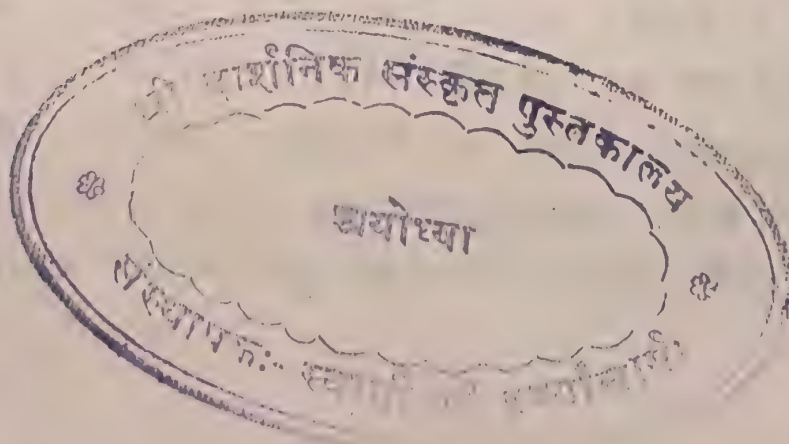 श्री दार्शनिक संस्कृत पुस्तकालय
अयोध्या
संस्थापक:- स्वामी